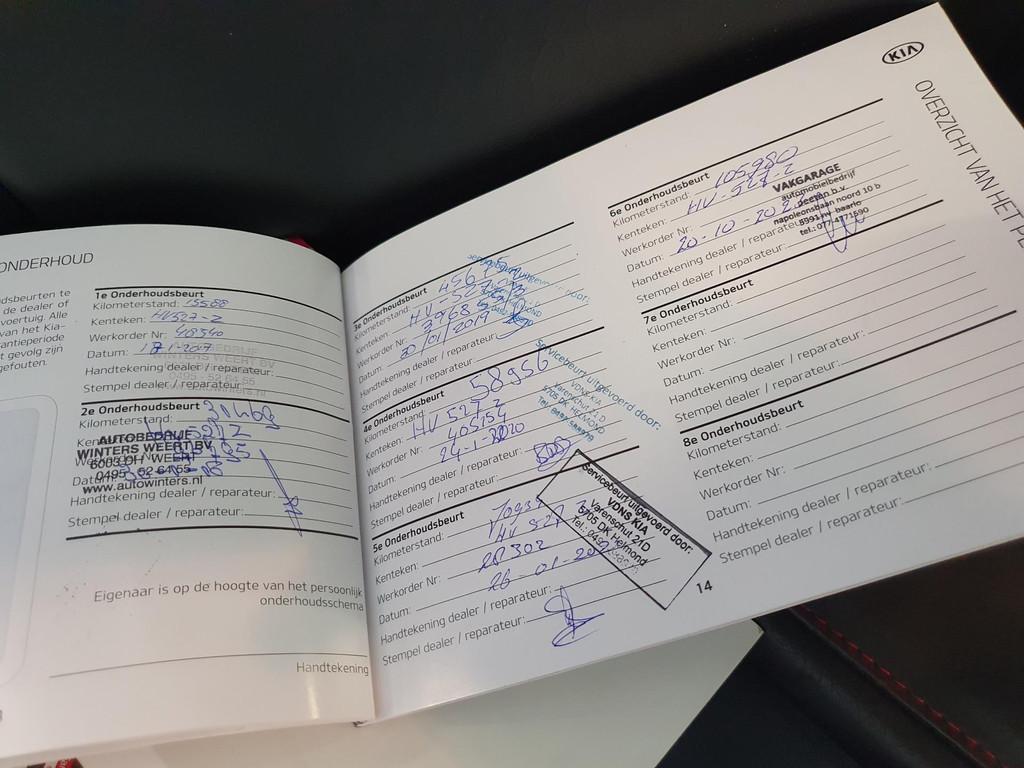 ONDERHOUD
dsbeurten te
de dealer of
voertuig. Alle
van het Kia-
rantieperiode
t gevolg zijn
gefouten.
1e Onderhoudsbeurt
Kilometerstand: 15588
Kenteken: HV527-Z
Werkorder Nr:
Datum:
Handtekening dealer / reparateur:
Stempel dealer / reparateur:
WINTERS WEERT BV
0495 - 52 64 65
2e Onderhoudsbeurt
Kilometerstand: 31468
AUTOBEDRIJF
WINTERS WEERT BV
6003 DH WEERT
0495 - 52 64 65
www.autowinters.nl
Handtekening dealer / reparateur:
Stempel dealer / reparateur:
Eigenaar is op de hoogte van het persoonlijk
onderhoudsschema
Handtekening
3e Onderhoudsbeurt
Kilometerstand:
Kenteken: HV-527-Z
Werkorder Nr:
Datum: 30/01/2019
Handtekening dealer / reparateur:
Stempel dealer / reparateur:
4e Onderhoudsbeurt
Kilometerstand: 58956
Kenteken: HV 527-Z
Werkorder Nr: 405154
Datum: 24-1-2020
Handtekening dealer / reparateur:
Stempel dealer / reparateur:
Servicebeurt uitgevoerd door:
VONS KIA
Varenschut 21D
5705 DK HELMOND
5e Onderhoudsbeurt
Kilometerstand:
Kenteken: HV 527
Werkorder Nr:
Datum: 26-01-202
Handtekening dealer / reparateur:
Stempel dealer / reparateur:
Servicebeurt uitgevoerd door:
VONS KIA
Varenschut 21D
5705 DK Helmond
14
KIA
OVERZICHT VAN HET PE
6e Onderhoudsbeurt
Kilometerstand: 105980
Kenteken: HV-527-Z
Werkorder Nr:
Datum: 20-10-202
Handtekening dealer / reparateur:
Stempel dealer / reparateur:
VAKGARAGE
automobielbedrijf
b.v.
napoleonsbaan noord 10 b
5991 nv baarlo
tel.: 077-4771590
7e Onderhoudsbeurt
Kilometerstand:
Kenteken:
Werkorder Nr:
Datum:
Handtekening dealer / reparateur:
Stempel dealer / reparateur:
8e Onderhoudsbeurt
Kilometerstand:
Kenteken:
Werkorder Nr:
Datum:
Handtekening dealer / reparateur:
Stempel dealer / reparateur: